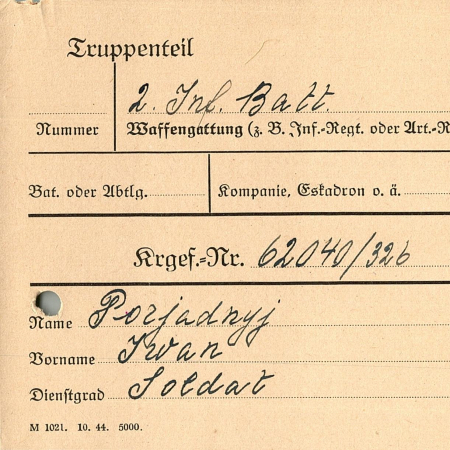 Truppenteil
2. Inf. Batt.
Nummer Waffengattung (z. B. Inf.-Regt. oder Art.-R
Bat. oder Abtlg. Kompanie, Eskadron o. ä.
Krgef.-Nr. 62040/326
Name Porjadnyj
Vorname Iwan
Dienstgrad Soldat
M 1021. 10. 44. 5000.